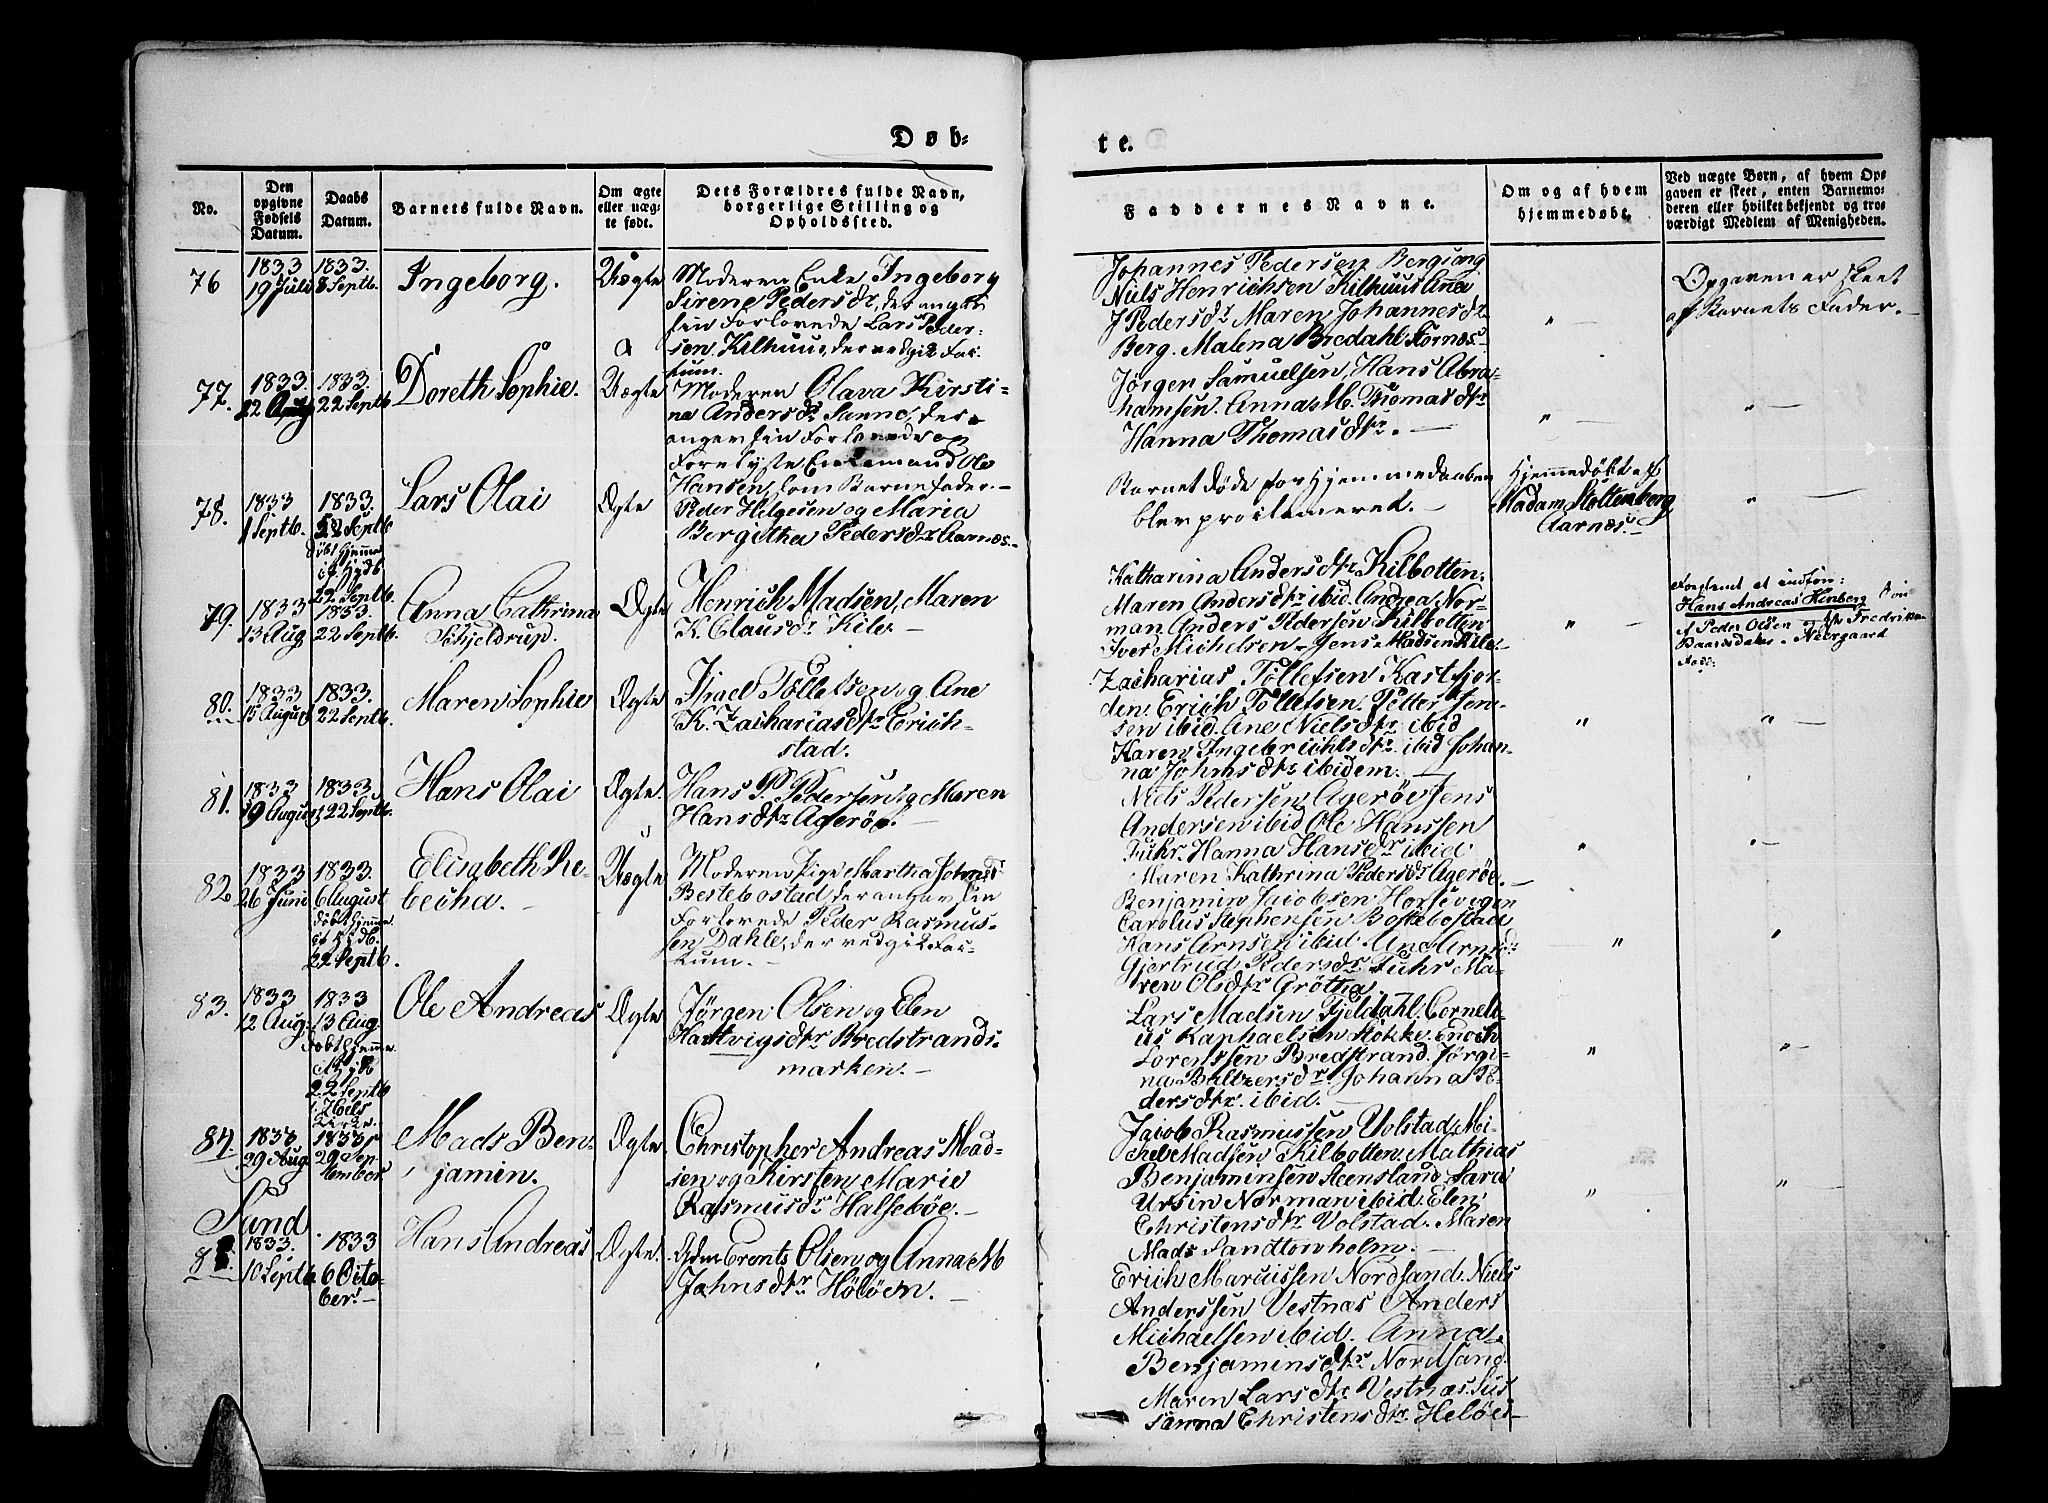 Døb-
te.
No.
Den opgivne Fødsels Datum.
Daabs Datum.
Barnets fulde Navn.
Om ægte eller uægte født.
Dets Forældres fulde Navn, borgerlige Stilling og Opholdssted.
Faddernes Navne.
Om og af hvem hjemmedøbt.
Ved uægte Børn, af hvem Opgaven er skeet, enten Barnemoderen eller hvilket bekjendt og troværdigt Medlem af Menigheden.
76
1833
19 Juli
1833.
8 Septb.
Ingeborg.
Uægte
Moderen Enke Ingeborg
Sirene Pedersdr, der angav
sin Forlovede Lars Peder-
sen Kilhuus, der vedgik Fac-
tum.
Johannes Pedersen Berg
Niels Henrichsen Kilhuus Ane
Pedersdr Maren Johannesdr
Berg. Malena Bredahl Fornæs
Opgaven er skeet
af Barnets Fader.
77.
1833.
22 Aug
1833.
22 Septb
Doreth Sophie.
Uægte
Moderen Olava Kirsti-
na Andersdr Sanne, der
angav sin Forlovede og
Forelyste Enkemand Ole
Hansen som Barnefader.
Jørgen Samuelsen, Hans Abra-
hamsen. Anna M. Thomasdtr
Hanna Thomasdtr.
78.
1833
1 Septb.
1833.
22 Septb
døbt hjemme
22 Septb.
Lars Olai
Ægte
Peder Helgesen og Maria
Bergitha Pedersdr Aarnæs.
Barnet døde før Hjemmedaaben
blev proclameret.
Hjemmedøbt af
Madam Stoltenberg
Aarnæs.
79.
1833
13 Aug.
1833.
22 Septb.
Anna Cathrina
Schjeldrup.
Ægte
Henrich Madsen, Maren
K. Clausdr Kile.
Katharina Andersdtr Kilbotten.
Maren Andersdtr ibid. Andrea Nor-
man. Anders Pedersen Kilbotten
Iver Michelsen. Jens Madsen Kile.
Forglemt at indføre:
Hans Andreas Hinberg
af Peder Olsen og Fredrikke
Baardsdatter Neergaard
80.
1833
15 August
1833.
22 Septb.
Maren Sophie
Ægte
Israel Tollefsen og Ane
K. Zachariasdtr Erich-
stad.
Zacharias Tollefsen Kastfjor-
den. Erich Tollefsen. Petter Jen-
sen ibid. Ane Nielsdtr ibid
Karen Ingebrichtsdtr ibid Johan-
na Johnsdtr ibidem.
81.
1833
19 August
1833.
22 Septb.
Hans Olai
Ægte.
Hans P. Pedersen og Maren
Hansdtr Agerøe.
Niels Pedersen Agerøe Jens
Andersen ibid Ole Hanssen
Fuhr. Hanna Hansdr ibid
Maren Kathrina Pedersdr Agerøe.
82
1833
26 Juni
1833.
6 August
døbt hjemme
22 Septb.
Elisabeth Re-
becha.
Uægte
Moderen Pige Martha Johnsdr
Bestebostad, der angav sin
Forlovede Peder Rasmus-
sen Dahle, der vedgik Fac-
tum.
Benjamin Jacobsen Horsevogen
Carolus Stephensen Bestebostad
Hans Arnsen ibid. Ane Arnsdr
Gjertrud Pedersdr Fuhr Ma-
ren Olsdtr Grøthø.
83.
1833
12 Aug.
1833
13 Aug.
døbt hjemme
22 Septb
Kirke.
Ole Andreas
Ægte
Jørgen Olsen og Elen
Hartvigsdtr Bredstrands-
marken.
Lars Madsen Fjeldahl. Corneli-
us Raphaelsen Stokke. Enoch
Lorenssen Bredstrand. Jørgi-
na Baltzersdr. Johanna Pe-
dersdtr. ibid.
84.
1833.
29 Aug
1833
29 Sep-
tember
Mads Ben-
jamin.
Ægte
Christopher Andreas Mad-
sen og Kirsten Marie
Rasmusdr Halsebøe.
Jacob Rasmussen Volstad. Mi-
chel Madsen Kilbotten. Mathias
Benjaminsen Reensland. Sara
Ursin Norman ibid. Elen
Christensdtr Volstad. Maren
Mads Sandtorvholm.
Sand
85.
1833.
10 Septb
1833
6 Octo-
ber.
Hans Andreas
Ægte.
Gdm Eronts Olsen og Anna M
Johnsdtr Høløen.
Erich Marcussen Nordsand. Niels
Anderssen Vestnæs Anders
Michaelsen ibid. Anna
Benjaminsdtr Nordsand.
Maren Larsdtr Vestnæs. Sus
sanna Christensdtr Heløe